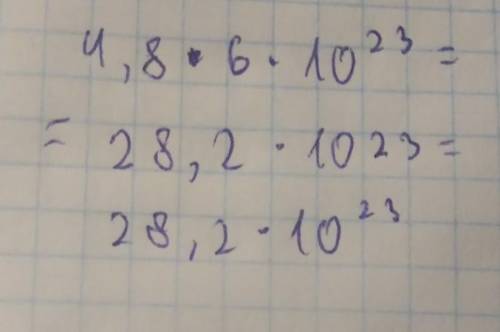 4,8 • 6 · 10²³ =
= 28,2 · 1023 =
28,2 · 10²³